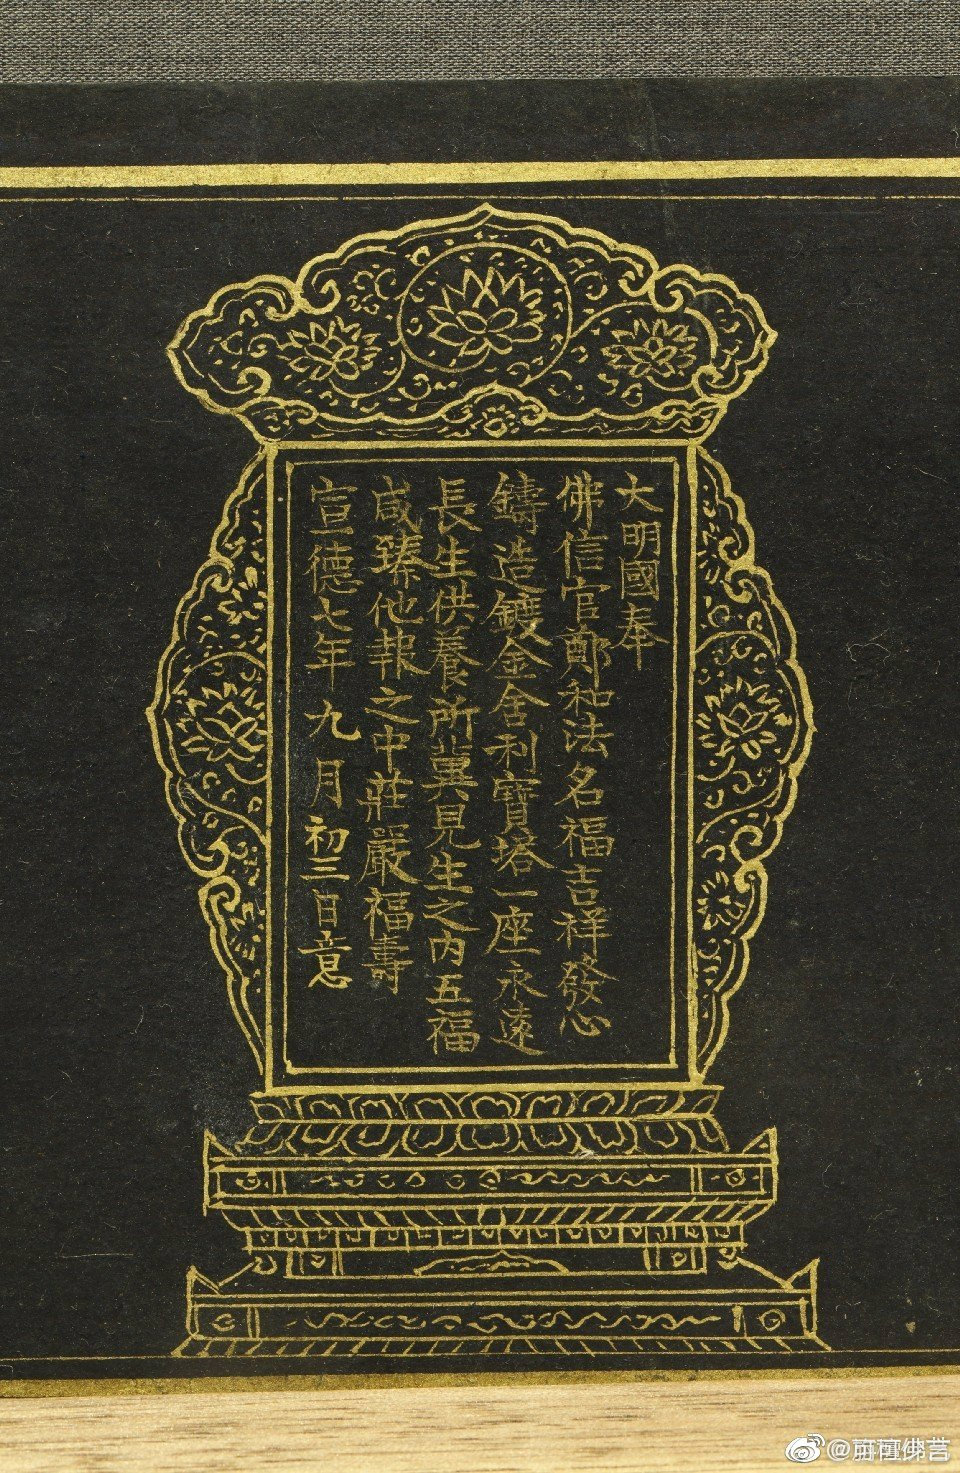 大明國奉
佛信官鄭和法名福吉祥發心
鑄造鍍金舍利寶塔一座永遠
長生供養所冀見生之内五福
咸臻他報之中莊嚴福壽
宣德七年九月初三日意